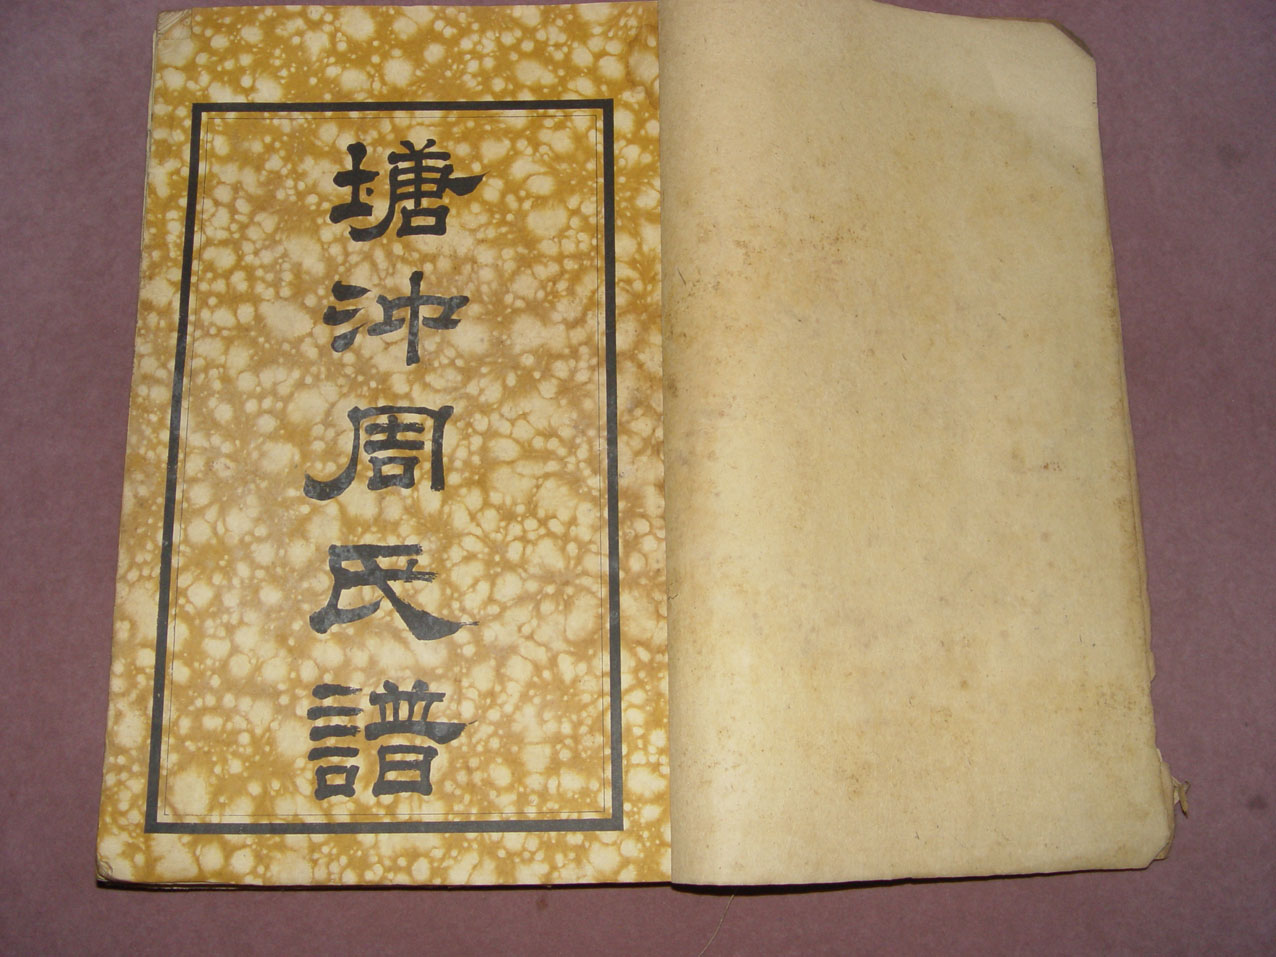 塘沖周氏譜